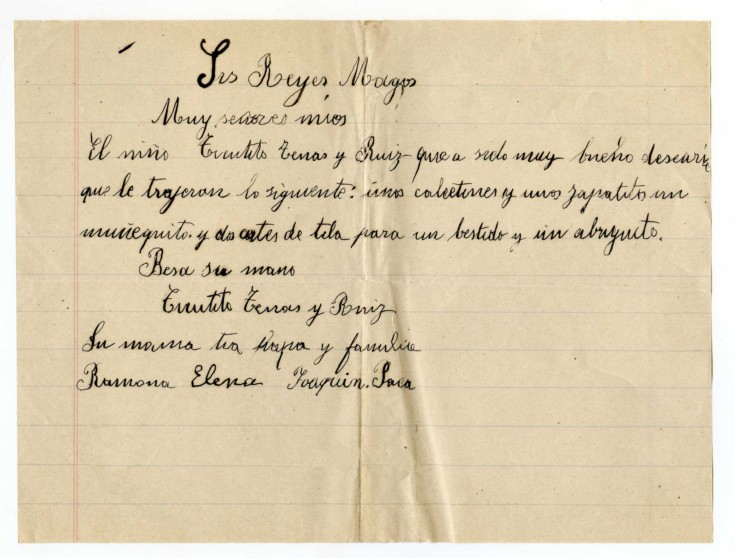 Srs Reyes Magos
Muy señores mios
El niño Tenas y Ruiz que a sido muy bueno desearia
que le trajeran lo siguiente: unos calcetines y unos zapatitos un
muñequito. y dos cortes de tela para un bestido y un abriguito.
Besa su mano
Tenas y Ruiz
Su mama tia papa y familia
Ramona Elena Joaquin. Paca